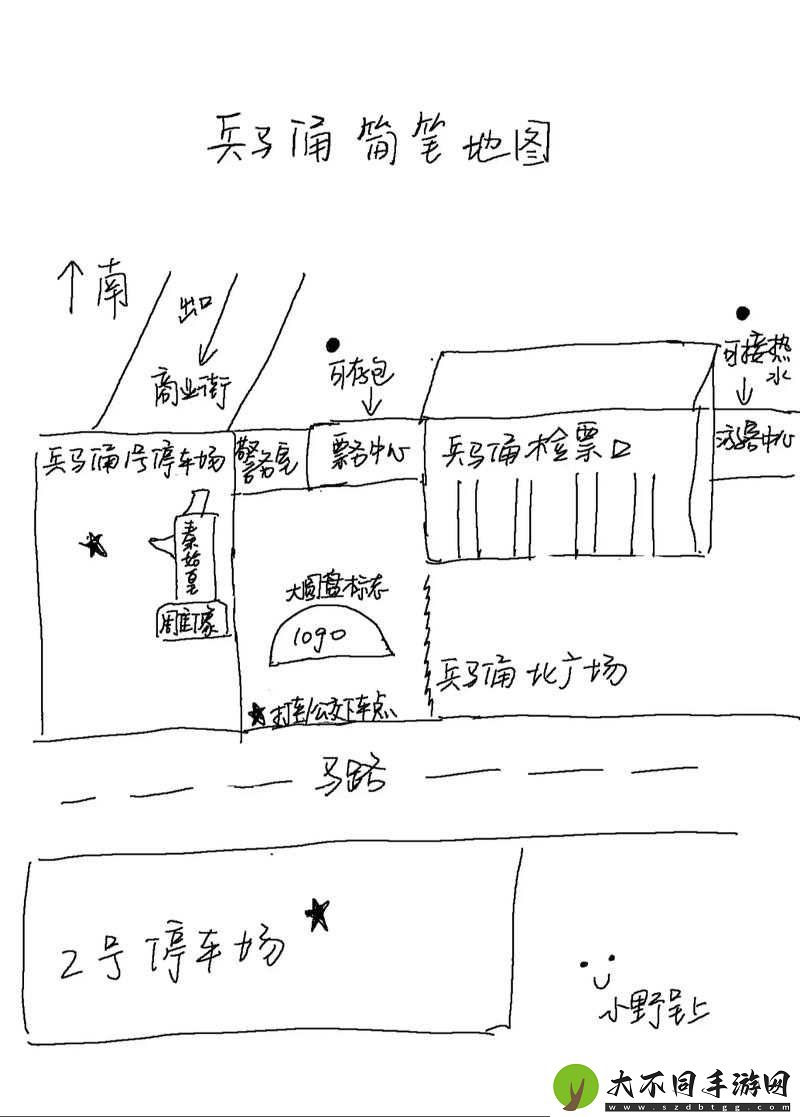 兵马俑简笔地图
↑南
出口
商业街
可存包
可接热
水
兵马俑1号停车场
警务室
票务中心
兵马俑检票口
游客中心
秦始皇
雕像
大圆盘标志
1090
兵马俑北广场
打车/公交下车点
马路
2号停车场
小野呈上
大不同手游网
www.szdbtgg.com